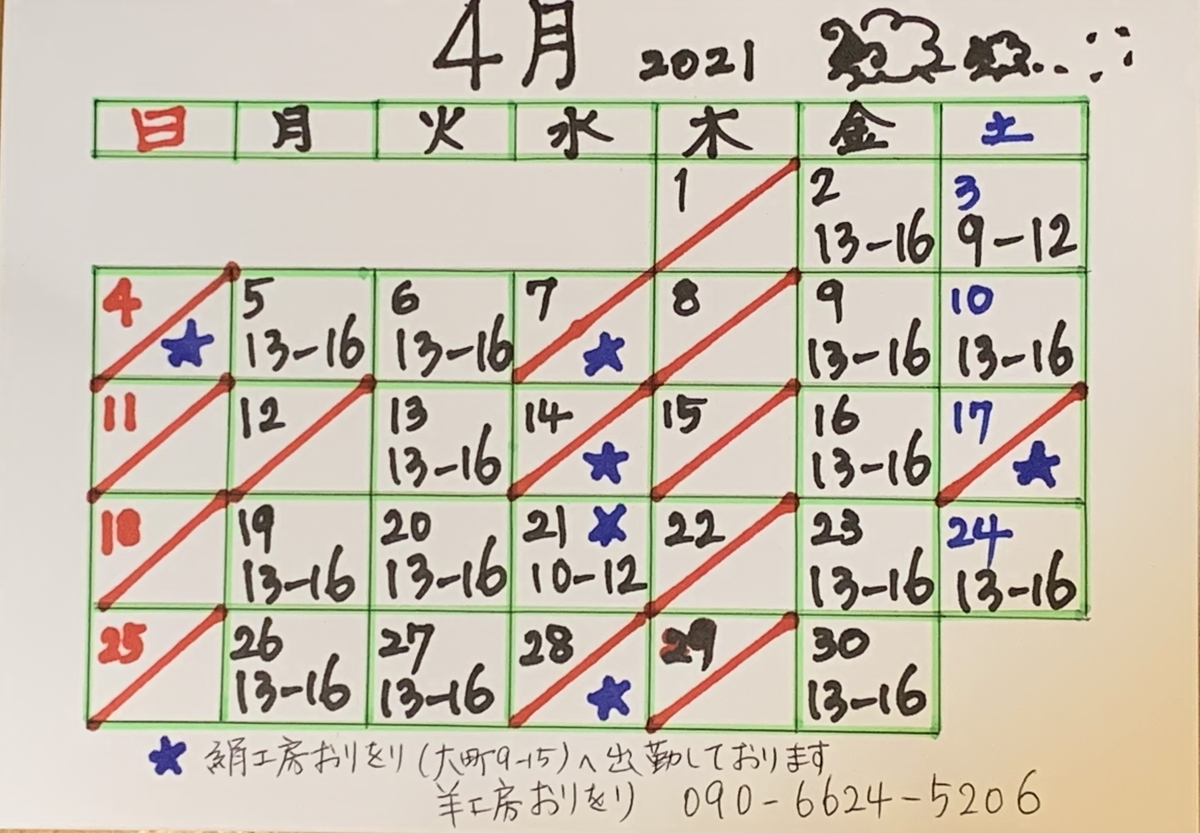 4月 2021
日 月 火 水 木 金 土
1 2 3
13-16 9-12
4 5 6 7 8 9 10
★ 13-16 13-16 ★ 13-16 13-16
11 12 13 14 15 16 17
13-16 ★ 13-16 ★
18 19 20 21 ★ 22 23 24
13-16 13-16 10-12 13-16 13-16
25 26 27 28 29 30
13-16 13-16 ★ 13-16
★ 絹工房おりをり(大町9-15)へ出勤しております
羊工房おりをり 090-6624-5206